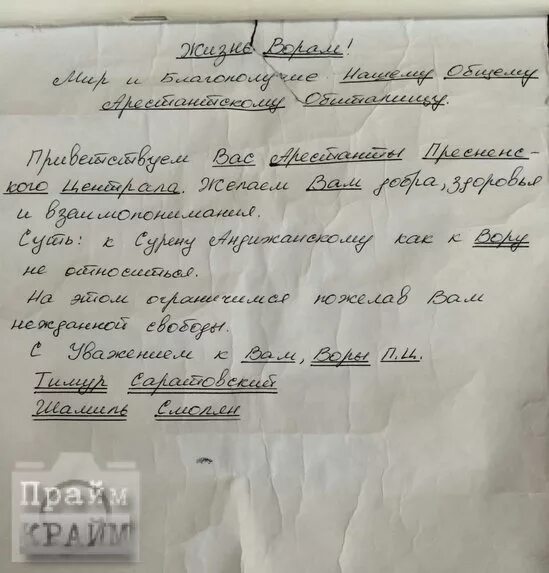 Жизнь Ворам!
Мир и Благополучие Нашему Общему
Арестантскому Обиталищу.
Приветствуем Вас Арестанты Пресненс-
кого Централа. Желаем Вам добра, здоровья
и взаимопонимания.
Суть: к Сурену Андижанскому как к Вору
не относиться.
На этом ограничимся пожелав Вам
нежданной свободы.
С Уважением к Вам, Воры П.Ц.
Тимур Саратовский
Шамиль Смолян
Прайм
КРАЙМ